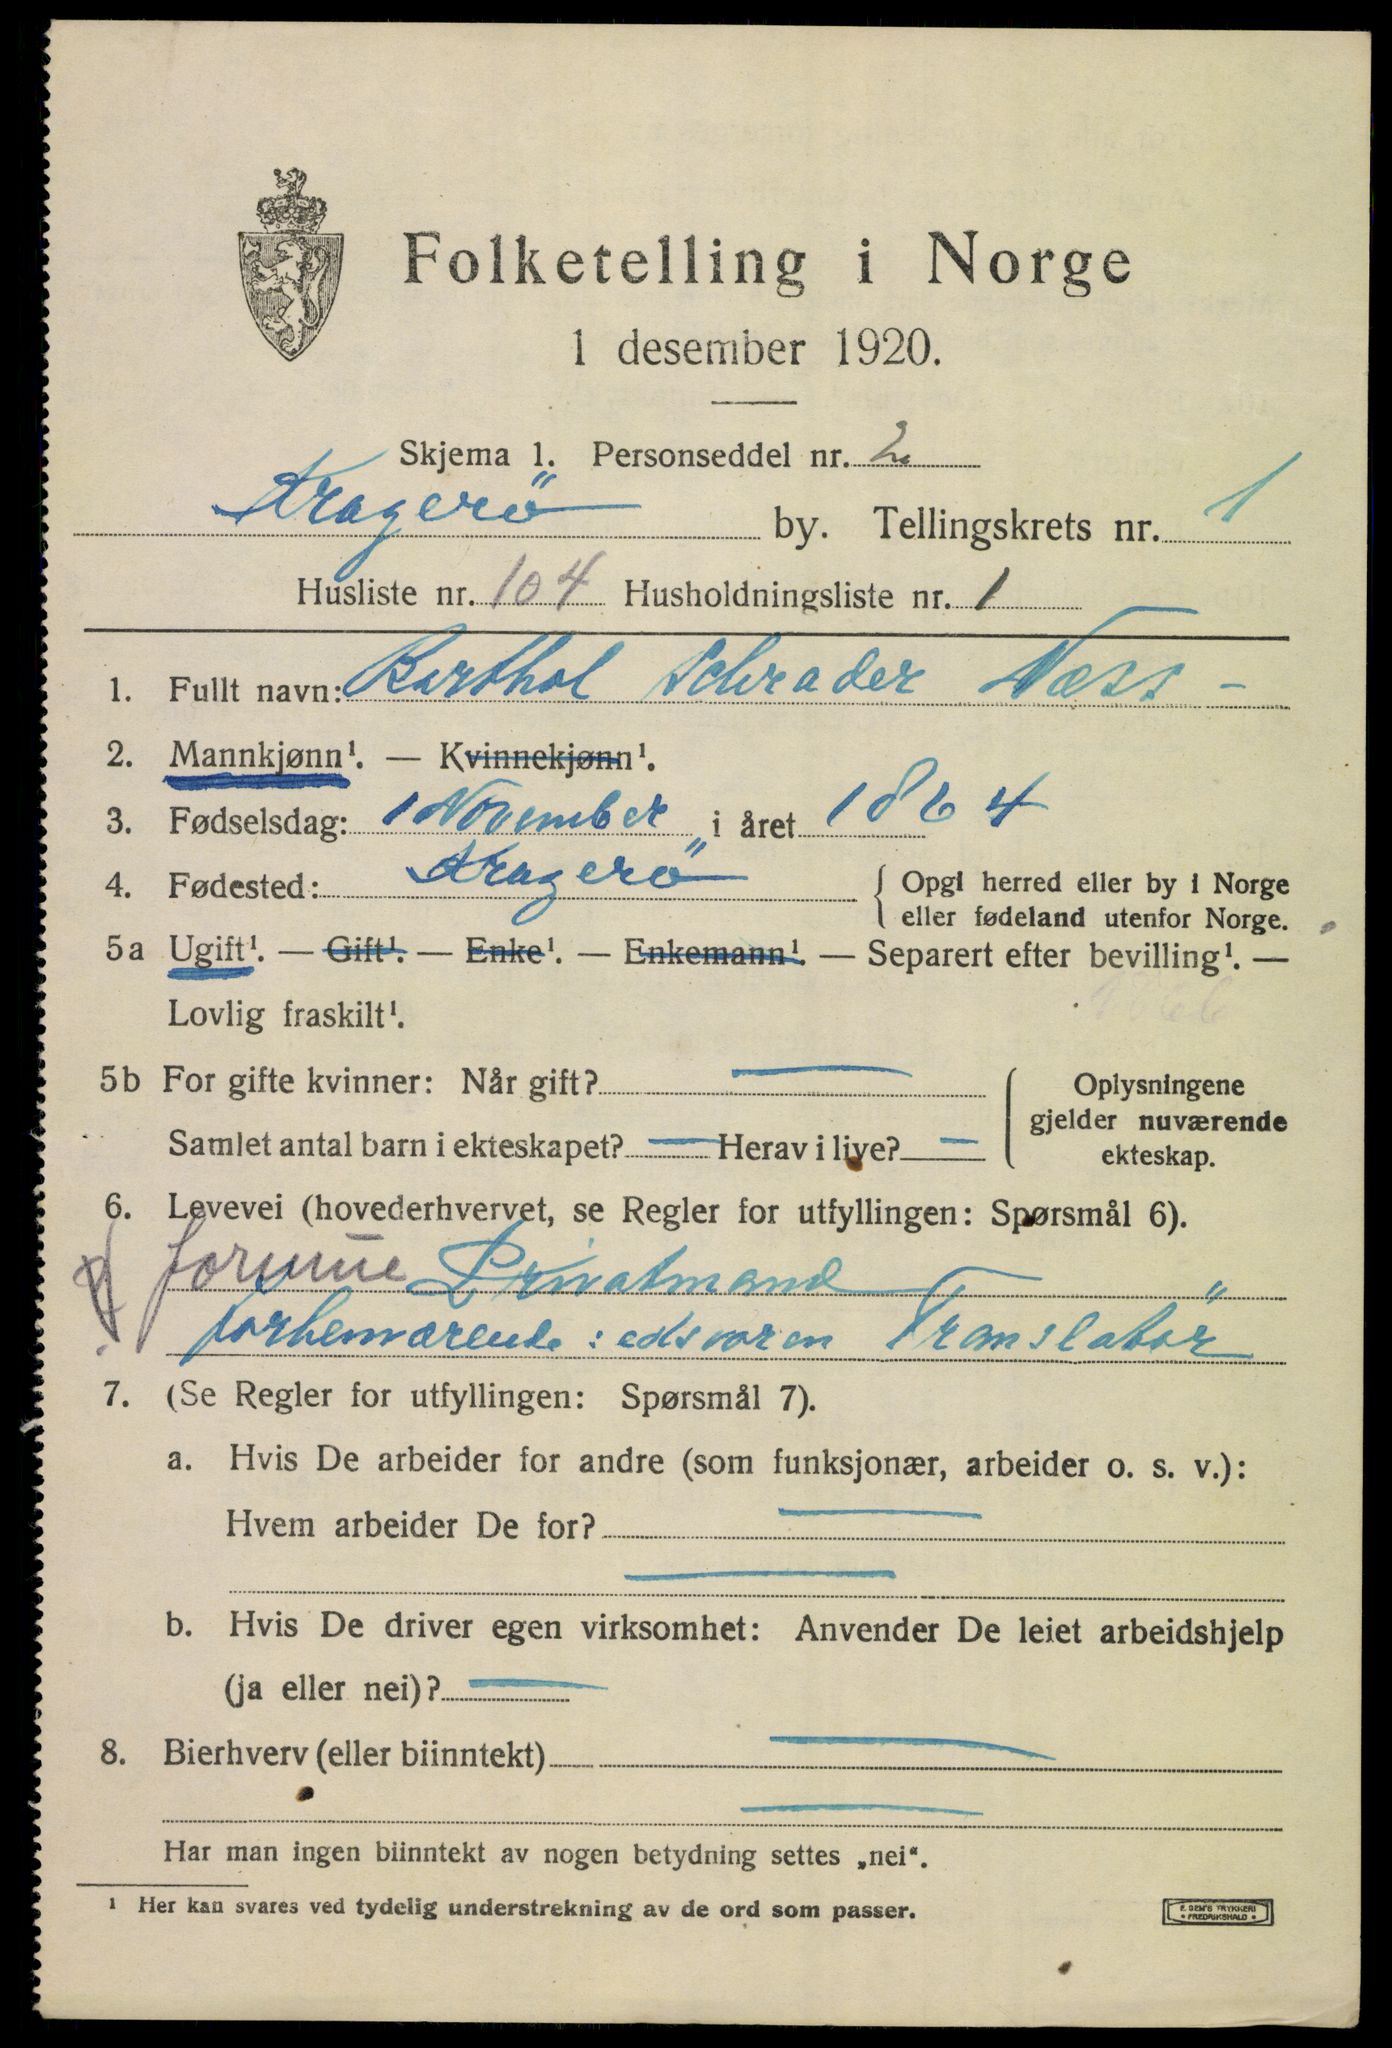 Folketelling i Norge
1 desember 1920.
Skjema 1. Personseddel nr. 2
Kragerö by. Tellingskrets nr. 1
Husliste nr. 104 Husholdningsliste nr. 1
1. Fullt navn: Barthol Schrader Næss -
2. Mannkjønn¹. — Kvinnekjønn¹.
3. Fødselsdag: 1 November i året 1864
4. Fødested: Kragerö { Opgi herred eller by i Norge
eller fødeland utenfor Norge.
5a Ugift¹. — Gift¹. — Enke¹. — Enkemann¹. — Separert efter bevilling¹. —
Lovlig fraskilt¹.
5b For gifte kvinner: Når gift? — { Oplysningene
gjelder nuværende
ekteskap.
Samlet antal barn i ekteskapet? — Herav i live? —
6. Levevei (hovederhvervet, se Regler for utfyllingen: Spørsmål 6).
formue Privatmand
forhenværende: edsvoren Translatör
7. (Se Regler for utfyllingen: Spørsmål 7).
a. Hvis De arbeider for andre (som funksjonær, arbeider o. s. v.):
Hvem arbeider De for? —
—
b. Hvis De driver egen virksomhet: Anvender De leiet arbeidshjelp
(ja eller nei)? —
8. Bierhverv (eller biinntekt) —
—
Har man ingen biinntekt av nogen betydning settes „nei“.
¹ Her kan svares ved tydelig understrekning av de ord som passer.
E. SEM'S TRYKKERI
• FREDRIKSHALD •